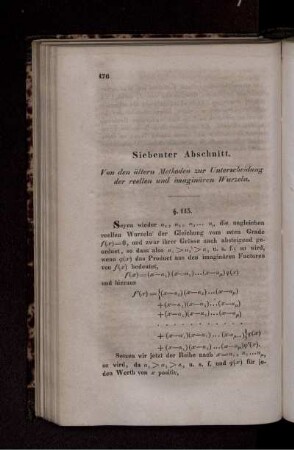 176
Siebenter Abschnitt.
Von den ältern Methoden zur Unterscheidung
der reellen und imaginären Wurzeln.
§. 115.
Seyen wieder a₁, a₂, a₃... aₚ die ungleichen
reellen Wurzeln der Gleichung vom mten Grade
f(x)=0, und zwar ihrer Grösse nach absteigend geordnet,
so dass also a₁>a₂>a₃ u. s. f.; so wird,
wenn φ(x) das Product aus den imaginären Factoren
von f(x) bedeutet,
f(x)=(x—a₁)(x—a₂)...(x—aₚ)φ(x)
und hieraus
f'(x)={(x—a₂)(x—a₃)...(x—aₚ)
+(x—a₁)(x—a₃)...(x—aₚ)
+(x—a₁)(x—a₂)...(x—aₚ)
. . . . . . . . . . .
+(x—a₁)(x—a₂)...(x—aₚ₋₁)}φ(x)
+(x—a₁)(x—a₂)...(x—aₚ)φ'(x).
Setzen wir jetzt der Reihe nach x=a₁, ... aₚ,
so wird, da a₁>a₂>a₃ u. s. f. und φ(x) für jeden
Werth von x positiv,